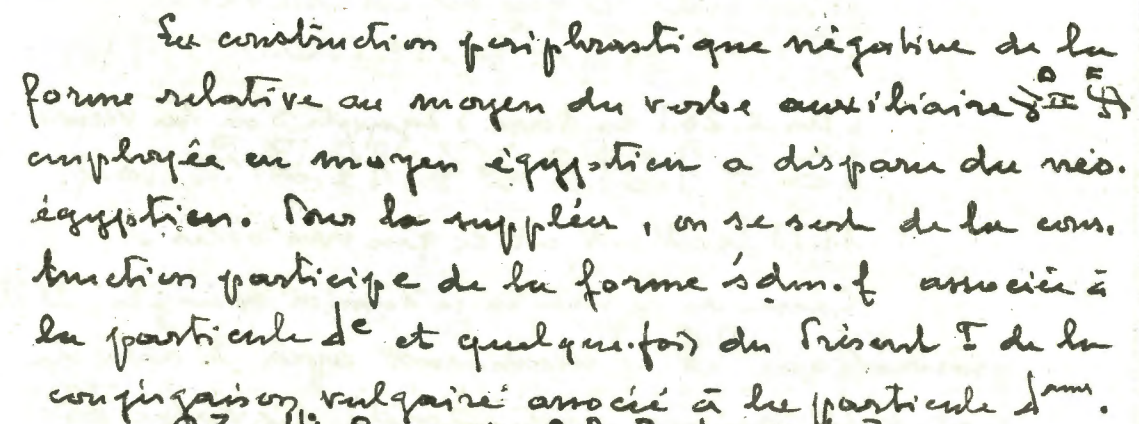 La construction periphrastique négative de la
forme relative au moyen du verbe auxiliaire
employée en moyen égyptien a disparu du néo-
égyptien. Pour la suppléer, on se sert de la cons-
truction participe de la forme śdm.f associée à
la particule et quelque.fois du Présent I de la
conjugaison vulgaire associé à la particule